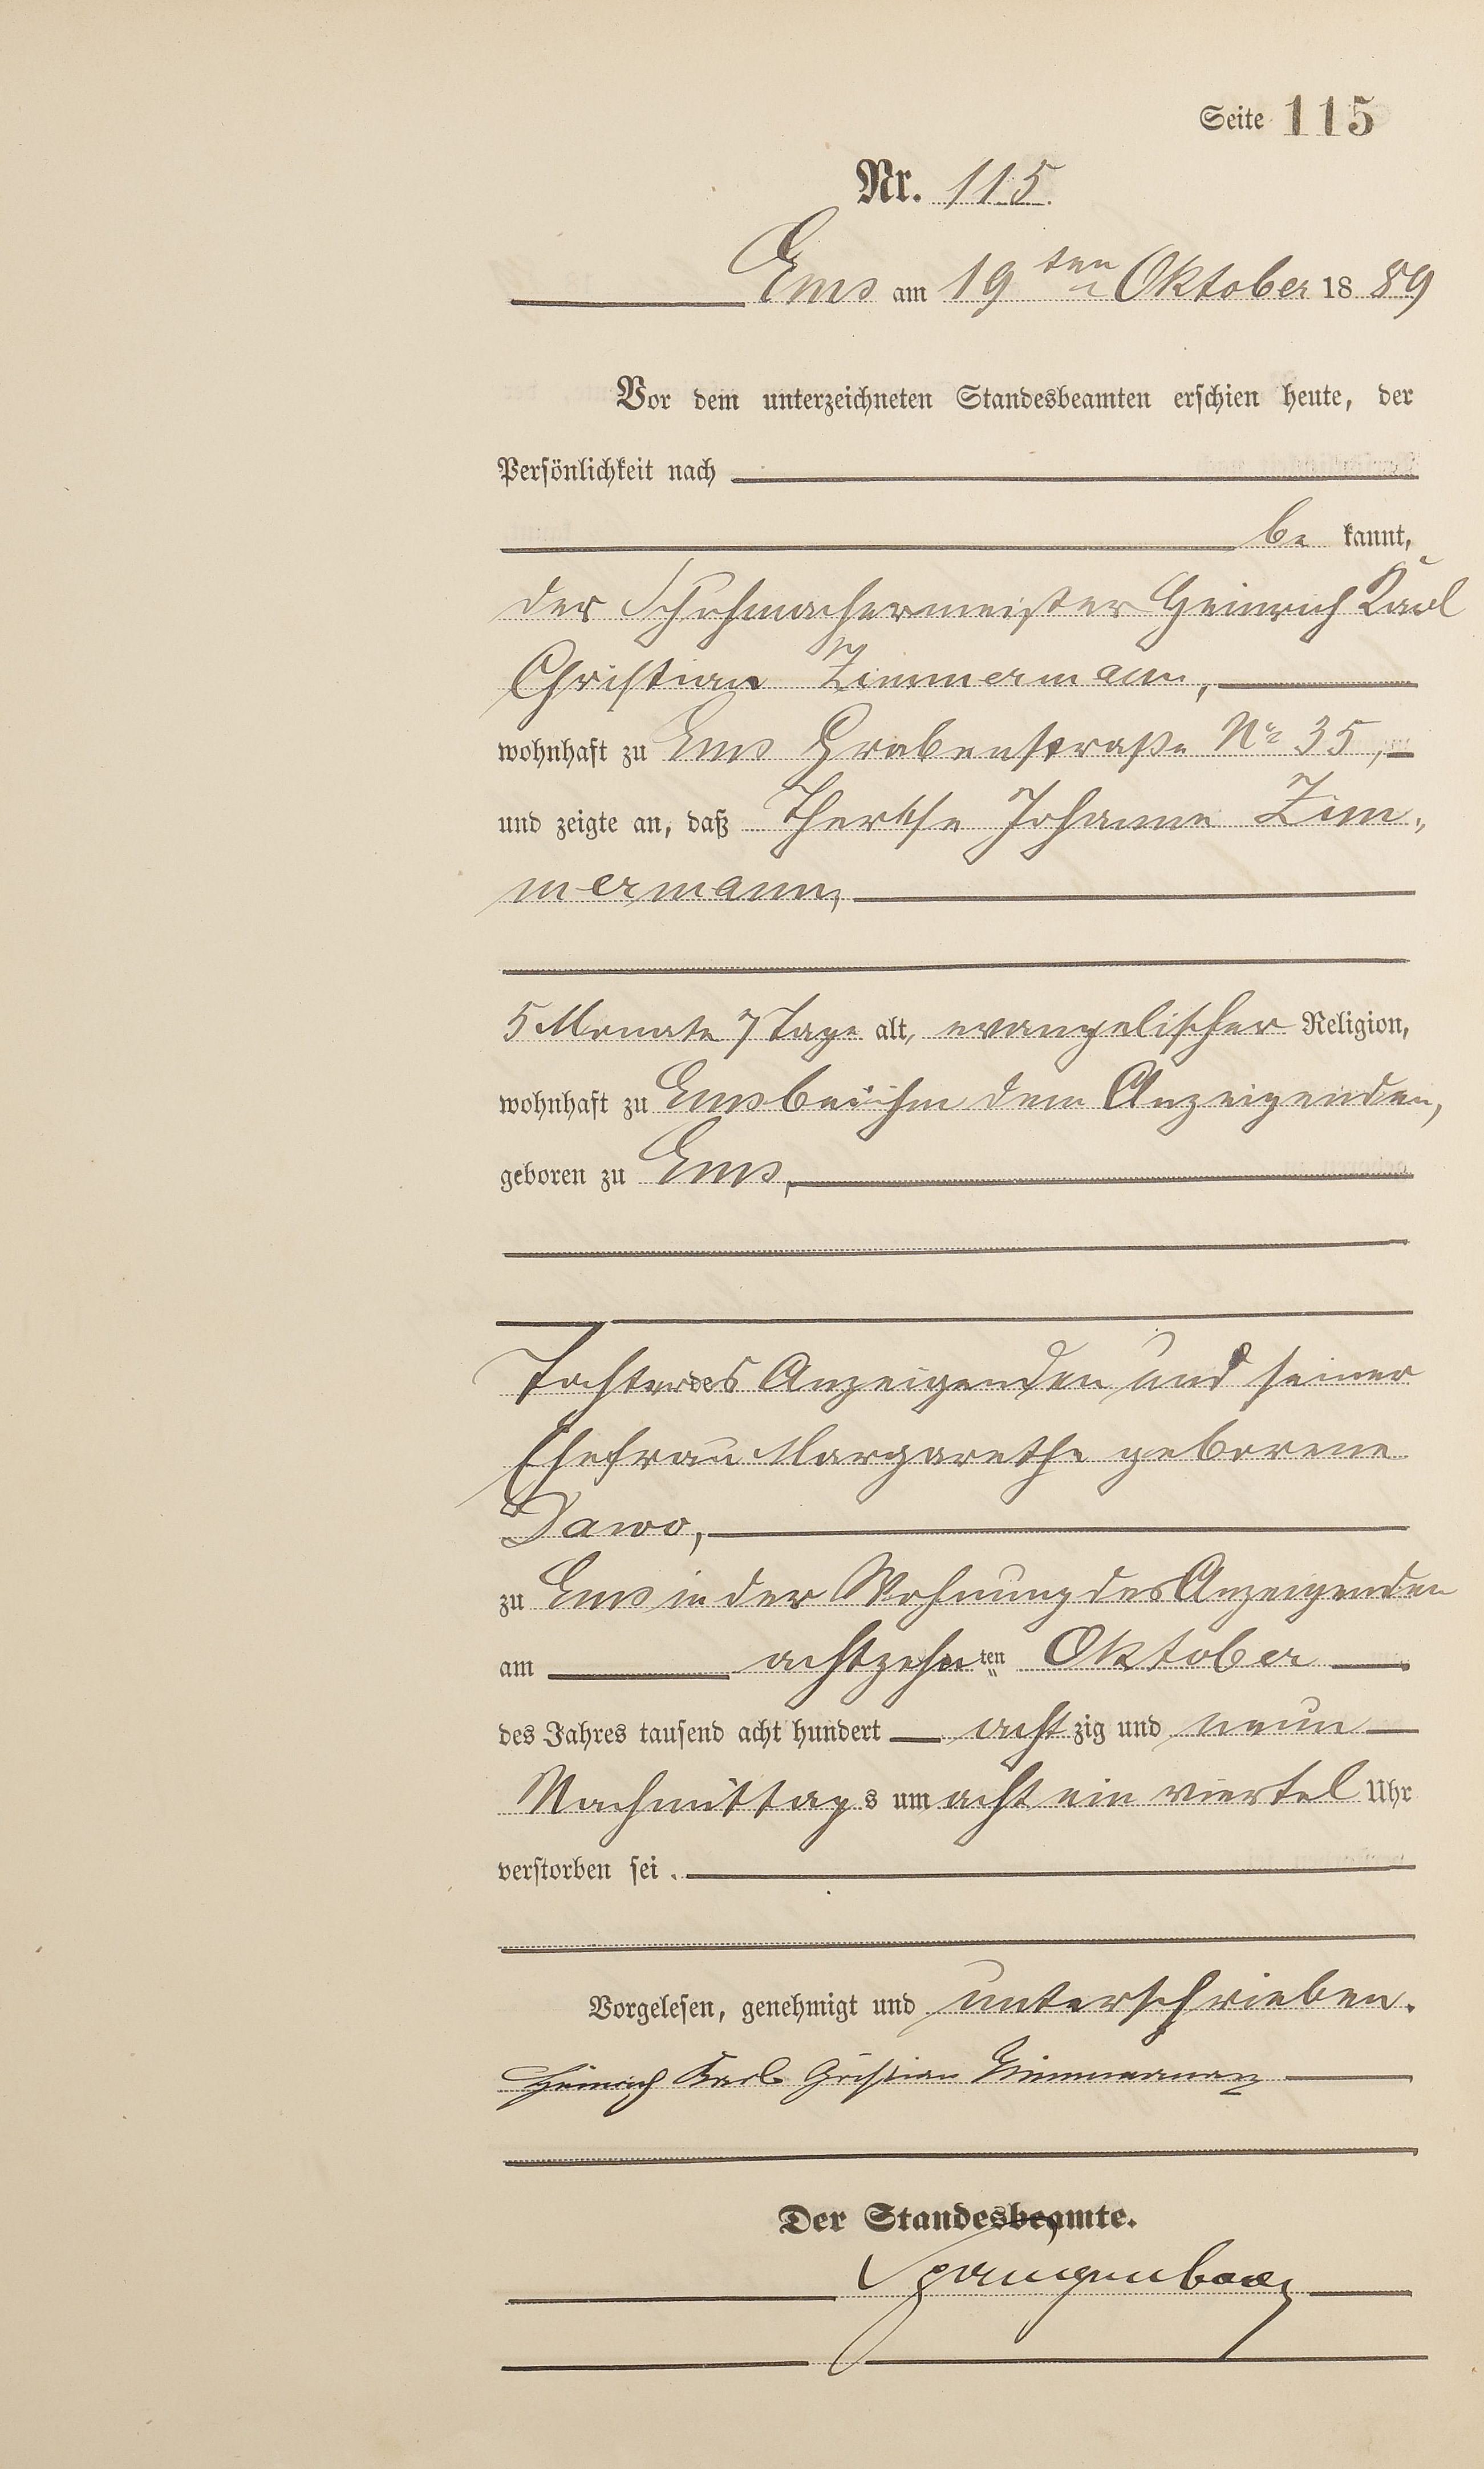 Seite 115
Nr. 115.
Ems am 19ten Oktober 1889
Vor dem unterzeichneten Standesbeamten erschien heute, der
Persönlichkeit nach
be kannt,
der Schuhmachermeister Heinrich Karl
Christian Zimmermann,
wohnhaft zu Ems Grabenstraße No 35,
und zeigte an, daß Therese Johanna Zim-
mermann,
5 Monate 7 Tage alt, evangelischer Religion,
wohnhaft zu Ems bei ihm dem Anzeigenden,
geboren zu Ems,
Tochter des Anzeigenden und seiner
Ehefrau Margarethe geborene
Dawo,
zu Ems in der Wohnung des Anzeigenden
am achtzehnten Oktober
des Jahres tausend acht hundert acht zig und neun
Nachmittags um acht ein viertel Uhr
verstorben sei.
Vorgelesen, genehmigt und unterschrieben.
Heinrich Karl Christian Zimmermann
Der Standesbeamte.
Spangenberg